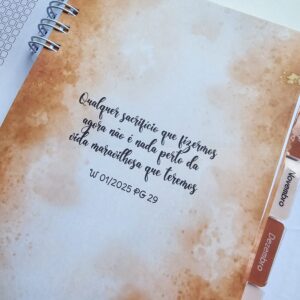 Qualquer sacrifício que fizermos
agora não é nada perto da
vida maravilhosa que teremos
W 01/2025 PG 29
Novembro
Dezembro